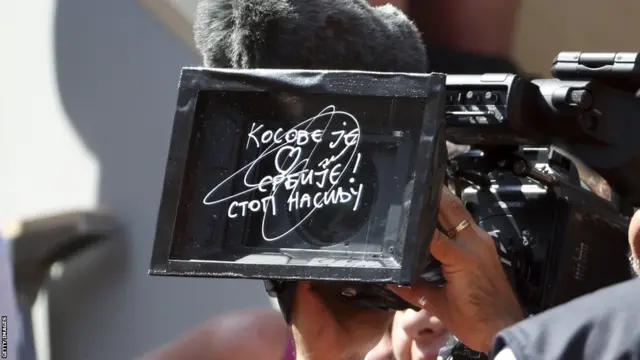 КОСОВО ЈЕ
♡
СРБИЈЕ!
СТОП НАСИЉУ
GETTY IMAGES